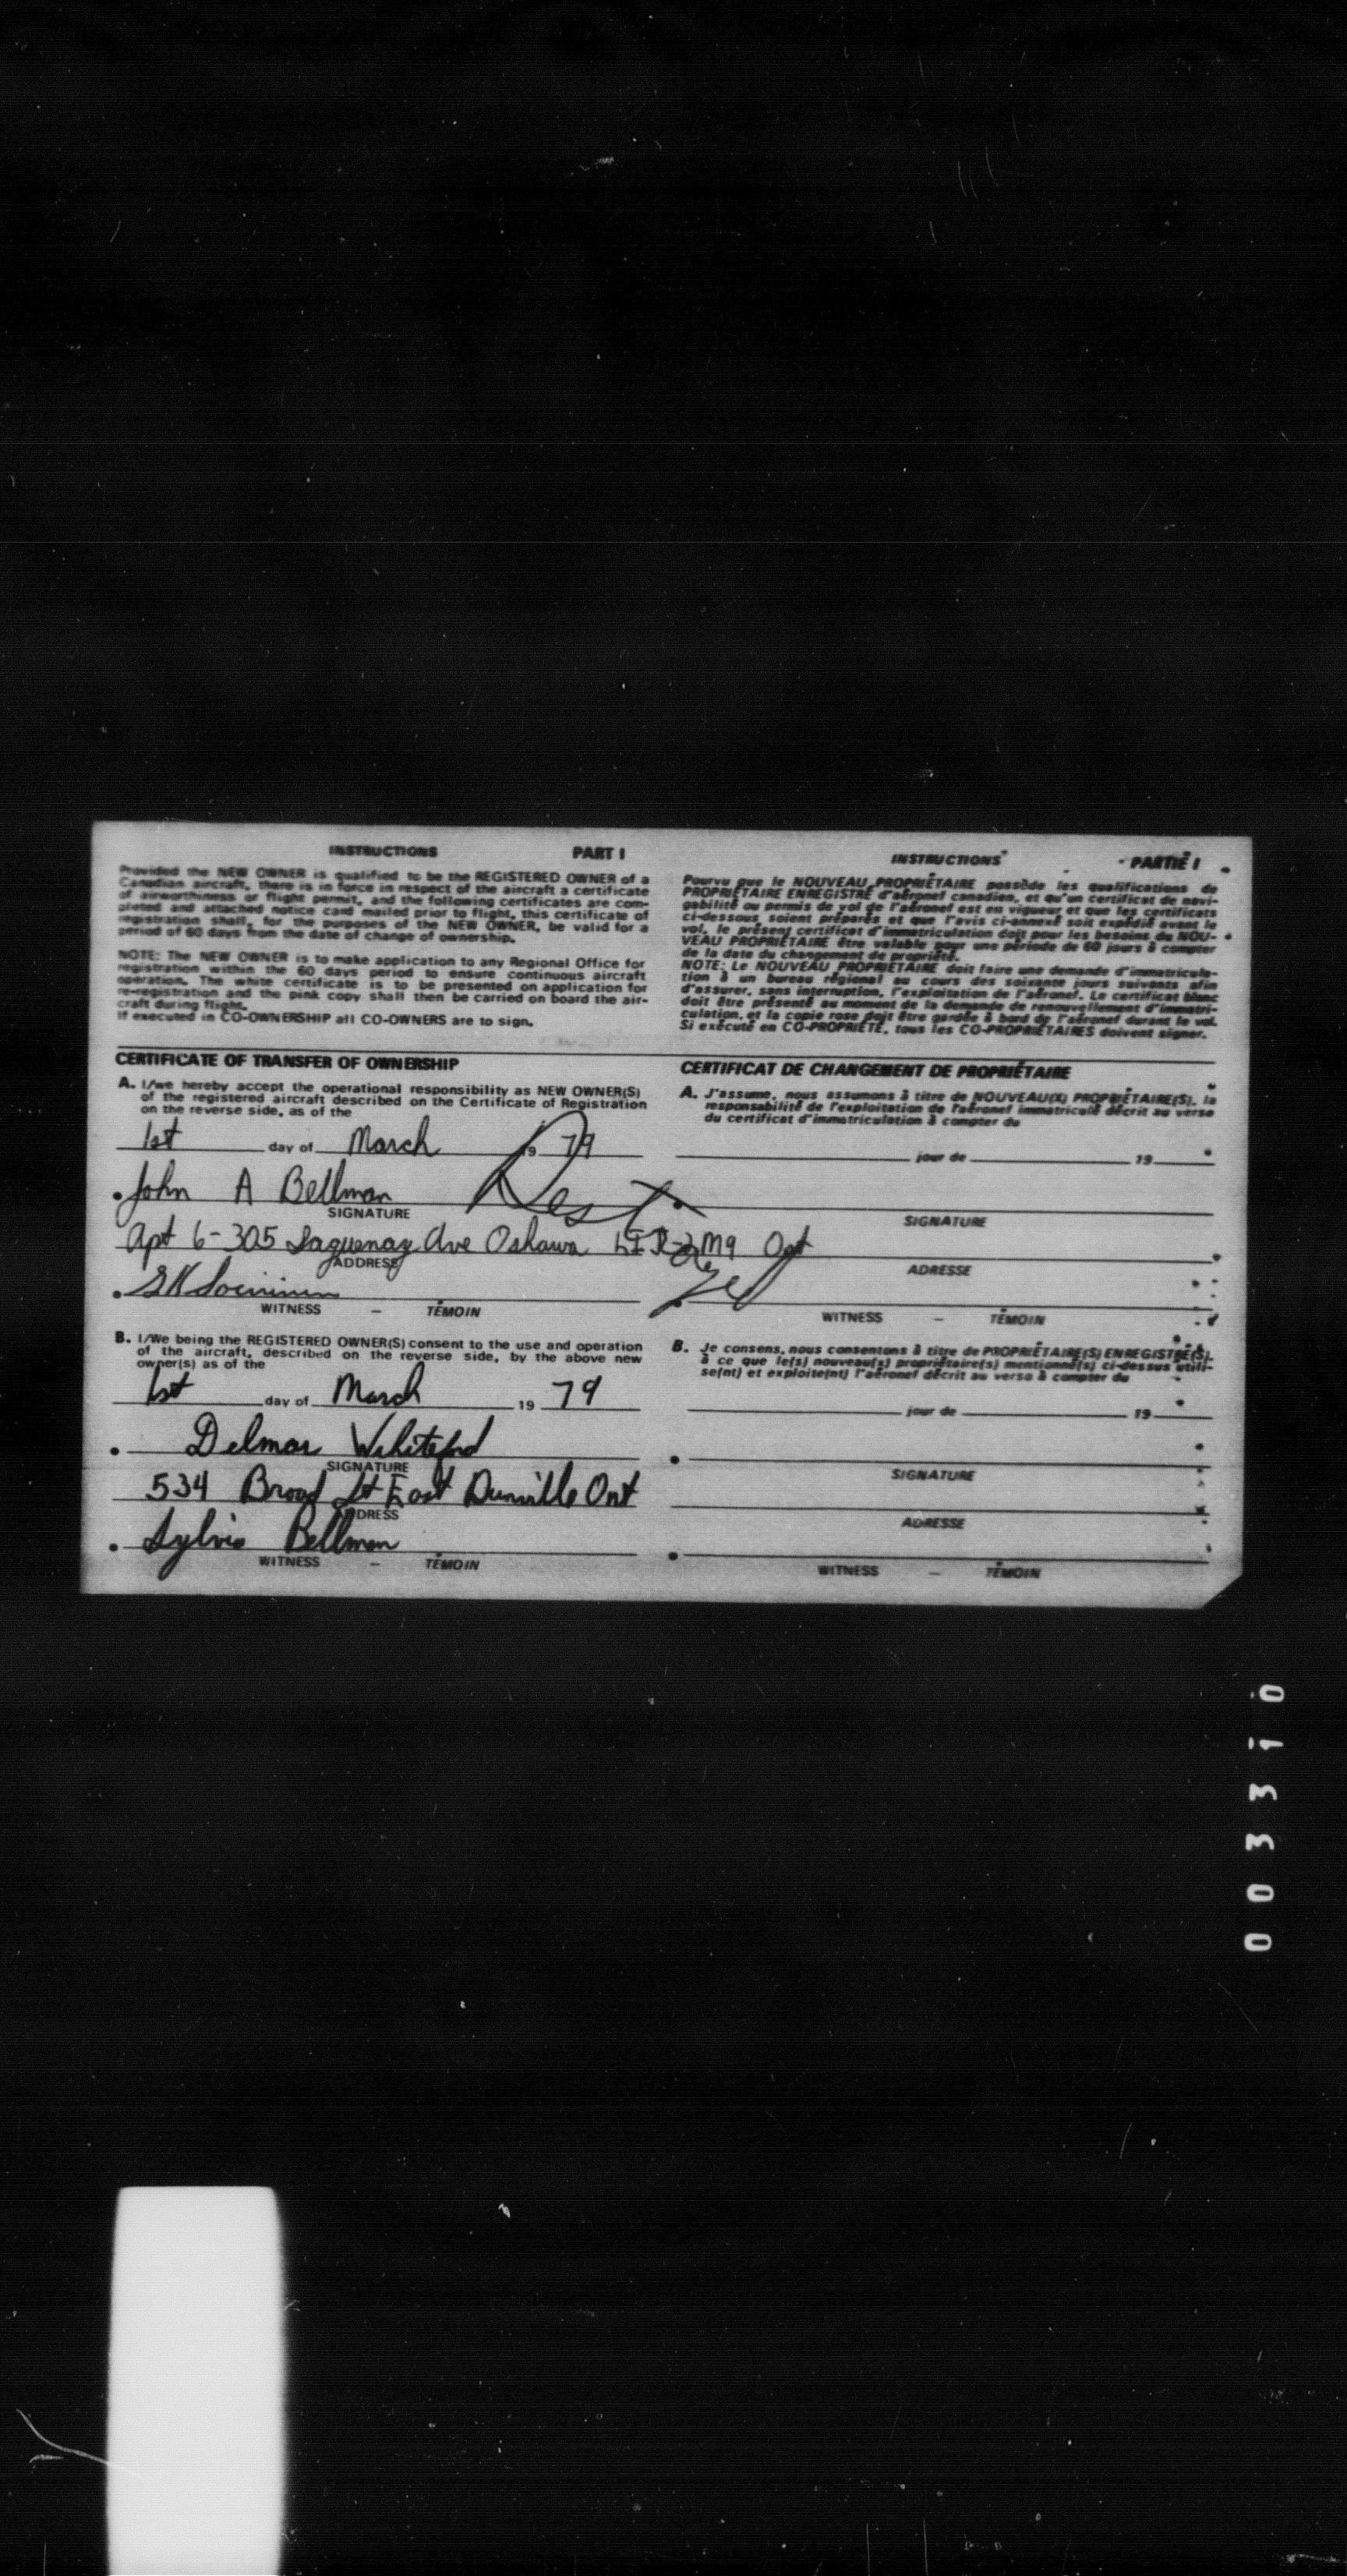 INSTRUCTIONS PART I
Provided the NEW OWNER is qualified to be the REGISTERED OWNER of a
Canadian aircraft, there is in force in respect of the aircraft a certificate
of airworthiness or flight permit, and the following certificates are com-
pleted and attached notice card mailed prior to flight, this certificate of
registration shall, for the purposes of the NEW OWNER, be valid for a
period of 60 days from the date of change of ownership.
NOTE: The NEW OWNER is to make application to any Regional Office for
registration within the 60 days period to ensure continuous aircraft
operation. The white certificate is to be presented on application for
re-registration and the pink copy shall then be carried on board the air-
craft during flight.
If executed in CO-OWNERSHIP all CO-OWNERS are to sign.
CERTIFICATE OF TRANSFER OF OWNERSHIP
A. I/we hereby accept the operational responsibility as NEW OWNER(S)
of the registered aircraft described on the Certificate of Registration
on the reverse side, as of the
1st day of March 19 79
John A Bellman
SIGNATURE
Apt 6-305 Saguenay Ave Oshawa Ont
ADDRESS
WITNESS - TÉMOIN
B. I/We being the REGISTERED OWNER(S) consent to the use and operation
of the aircraft, described on the reverse side, by the above new
owner(s) as of the
1st day of March 19 79
Delmar Whiteford
SIGNATURE
534 Broad St East Dunville Ont
ADDRESS
Sylvia Bellman
WITNESS - TÉMOIN
INSTRUCTIONS PARTIE I
Pourvu que le NOUVEAU PROPRIÉTAIRE possède les qualifications de
PROPRIÉTAIRE ENREGISTRÉ d'aéronef canadien, et qu'un certificat de navi-
gabilité ou permis de vol de l'aéronef est en vigueur et que les certificats
ci-dessous soient préparés et que l'avis ci-annexé soit expédié avant le
vol, le présent certificat d'immatriculation doit pour les besoins du NOU-
VEAU PROPRIÉTAIRE être valable pour une période de 60 jours à compter
de la date du changement de propriété.
NOTE: Le NOUVEAU PROPRIÉTAIRE doit faire une demande d'immatricula-
tion à un bureau régional au cours des soixante jours suivants afin
d'assurer, sans interruption, l'exploitation de l'aéronef. Le certificat blanc
doit être présenté au moment de la demande de renouvellement d'immatri-
culation, et la copie rose doit être gardée à bord de l'aéronef durant le vol.
Si exécuté en CO-PROPRIÉTÉ, tous les CO-PROPRIÉTAIRES doivent signer.
CERTIFICAT DE CHANGEMENT DE PROPRIÉTAIRE
A. J'assume, nous assumons à titre de NOUVEAU(X) PROPRIÉTAIRE(S), la
responsabilité de l'exploitation de l'aéronef immatriculé décrit au verso
du certificat d'immatriculation à compter du
jour de 19
SIGNATURE
ADRESSE
WITNESS - TÉMOIN
B. Je consens, nous consentons à titre de PROPRIÉTAIRE(S) ENREGISTRÉ(S),
à ce que le(s) nouveau(s) propriétaire(s) mentionné(s) ci-dessus utili-
se(nt) et exploite(nt) l'aéronef décrit au verso à compter du
jour de 19
SIGNATURE
ADRESSE
WITNESS - TÉMOIN
003310